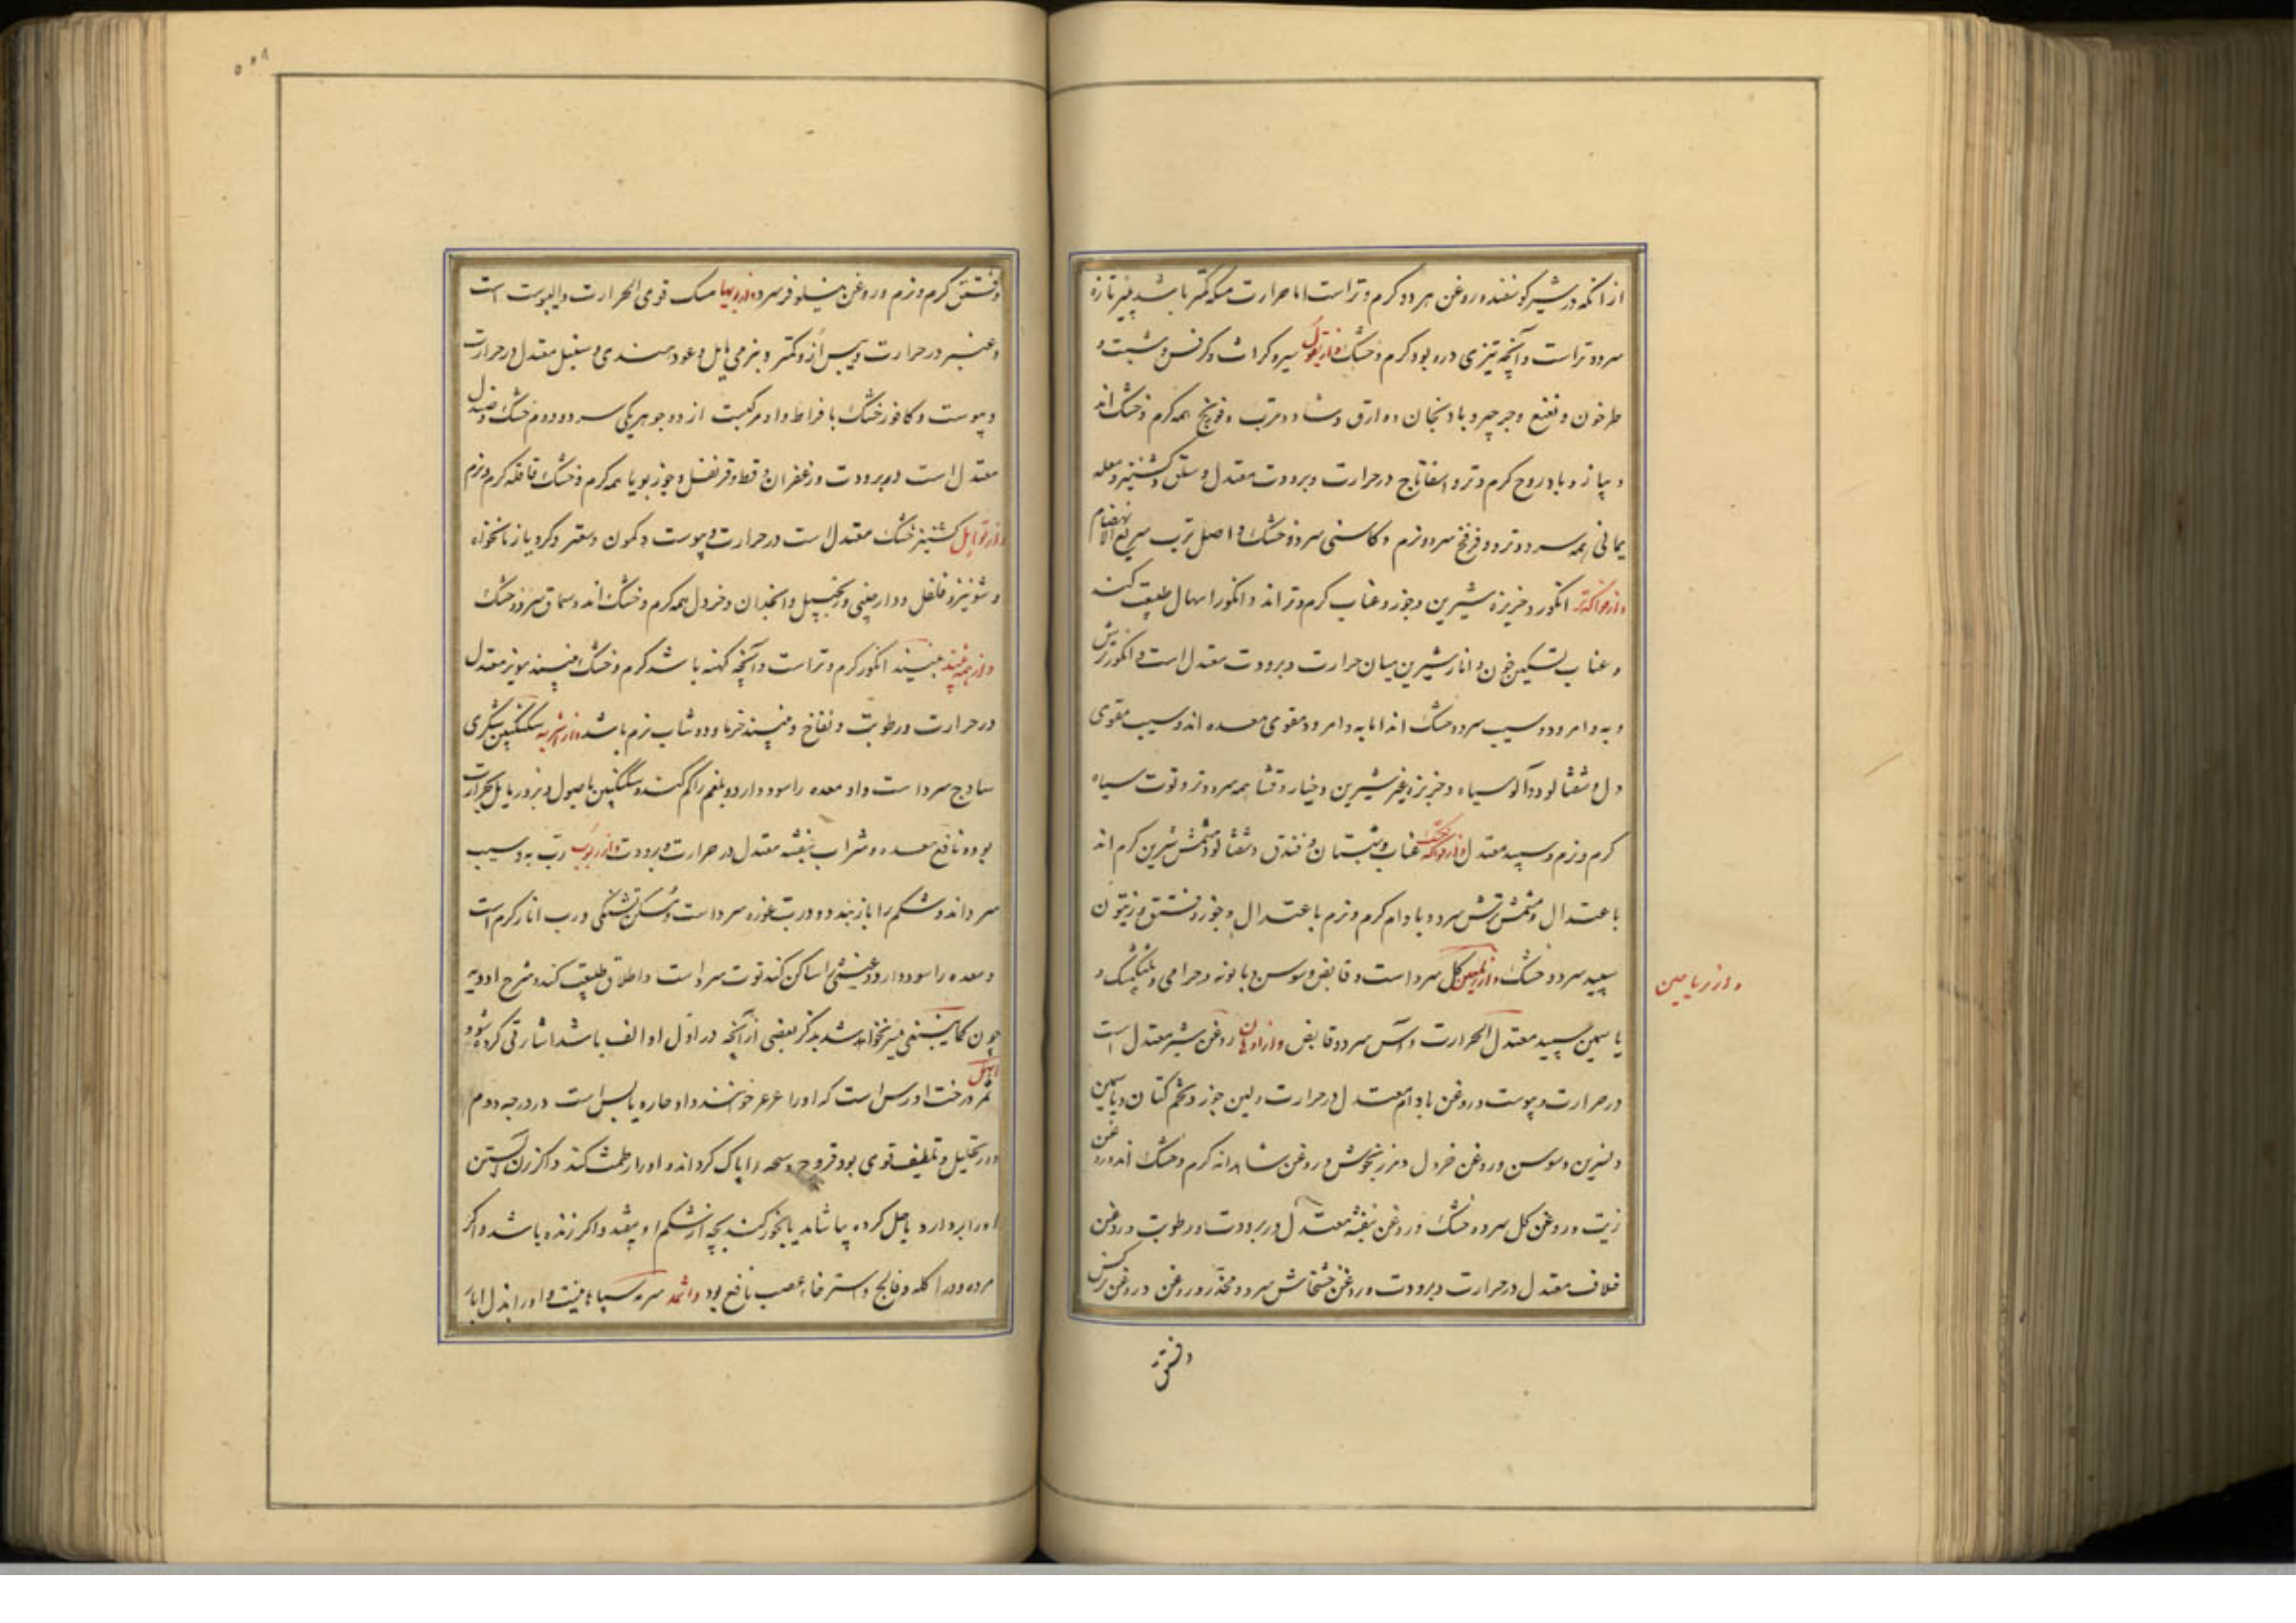 از انکه در شیر گوسفند و روغن هر دو گرم و تر است اما حرارت مسکه کمتر باشد پنیر تازه
سرد و تر است و آنچه تیزی درو بود گرم و خشک و از بقول سیر و کراث و کرفس و شبت و
طرخون و نعنع و جرجیر و بادنجان و شاه و ترب و فوتنج همه گرم و خشک اند
و پیاز و بادروج گرم و تر و اسفاناج در حرارت و برودت معتدل و سلق و کشنیز و بقله
یمانی همه سرد و تر و فرفخ سرد و نرم و کاسنی سرد و خشک و اصل ترب سریع الانهضام
و از فواکه تر انگور و خربزه شیرین و جوز و عناب گرم و تر اند و انگور اسهال طبیعت کند
و عناب تسکین خون و انار شیرین میان حرارت و برودت معتدل است و انگور ترش
و به و امرود و سیب سرد و خشک اند اما به و امرود مقوی معده اند و سیب مقوی
دل و شفتالو و آلو سیاه و خربزه غیر شیرین و خیار و قثا همه سرد و تر و توت سیاه
گرم و نرم و سپید معتدل و از فواکه خشک عناب و سپستان و فندق و شفتالو و مشمش شیرین گرم اند
باعتدال و مشمش ترش سرد و بادام گرم و نرم باعتدال و جوز و فستق و زیتون
سپید سرد و خشک گل سرد است و قابض و سوسن و بابونه و خزامی و
و از ریاحین
یاسمین سپید معتدل الحرارت و آس سرد و قابض و از ادهان روغن شیر معتدل است
در حرارت و یبوست و روغن بادام معتدل در حرارت و لین جوز و تخم کتان و یاسمین
و نسرین و سوسن و روغن خردل و مرزنجوش و روغن شاهدانه گرم و خشک اند و روغن
زیت و روغن گل سرد و خشک و روغن بنفشه معتدل در برودت و رطوبت و روغن
خلاف معتدل در حرارت و برودت و روغن خشخاش سرد و مخدر و روغن و روغن نرکس
و فستق
۵۰۸
و فستق گرم و نرم و روغن نیلوفر سرد مسک قوی الحرارت والیبوست است
و عنبر در حرارت و یبس ازو کمتر و بنرمی مایل و عود هندی و سنبل معتدل در حرارت
و یبوست و کافور خشک بافراط و او مرکبست از دو جوهر یکی سرد و دوم خشک و صندل
معتدل است در برودت و زعفران و قسط و قرنفل و جوز بویا همه گرم و خشک قاقله گرم و نرم
و از توابل کشنیز خشک معتدل است در حرارت و یبوست و کمون و صعتر و کرویا و نانخواه
و شونیز و فلفل و دارچینی و زنجبیل و انجدان و خردل همه گرم و خشک اند و سماق سرد و خشک
انگور گرم و تر است و آنچه کهنه باشد گرم و خشک مویز معتدل
در حرارت و رطوبت و نفاخ و خرما و دوشاب نرم باشد و از اشربه سکنگبین شکری
ساذج سرد است و او معده را سود دارد و بلغم را کم کند و سکنگبین باصول و بزور مایل بحرارت
بود و نافع معده و شراب بنفشه معتدل در حرارت و برودت و از ربوب رب به و سیب
سرد اند و شکم را باز بندد و رب غوره سرد است و مسکن تشنگی و رب انار گرم است
و معده را سود دارد و غثیان ساکن کند توت سرد است و اطلاق طبیعت کند و شرح ادویه
چون کما ینبغی میسر نخواهد شد بذکر بعضی از آنچه در اول او الف باشد اشارتی کرده شود
ابهل
ثمر درخت اورس است که او را عرعر خوانند و او حار و یابس است در درجه دوم
و در تحلیل و تلطیف قوی بود قروح را پاک گرداند و ادرار طمث کند و اگر زن آبستن
او را بردارد یا حل کرده بیاشامد یا بخور کند بچه از شکم او بیفتد و اگر زنده باشد و اگر
مرده و در آکله و فالج و استرخاء عصب نافع بود و اثمد سرمه سیاه و او را بدل